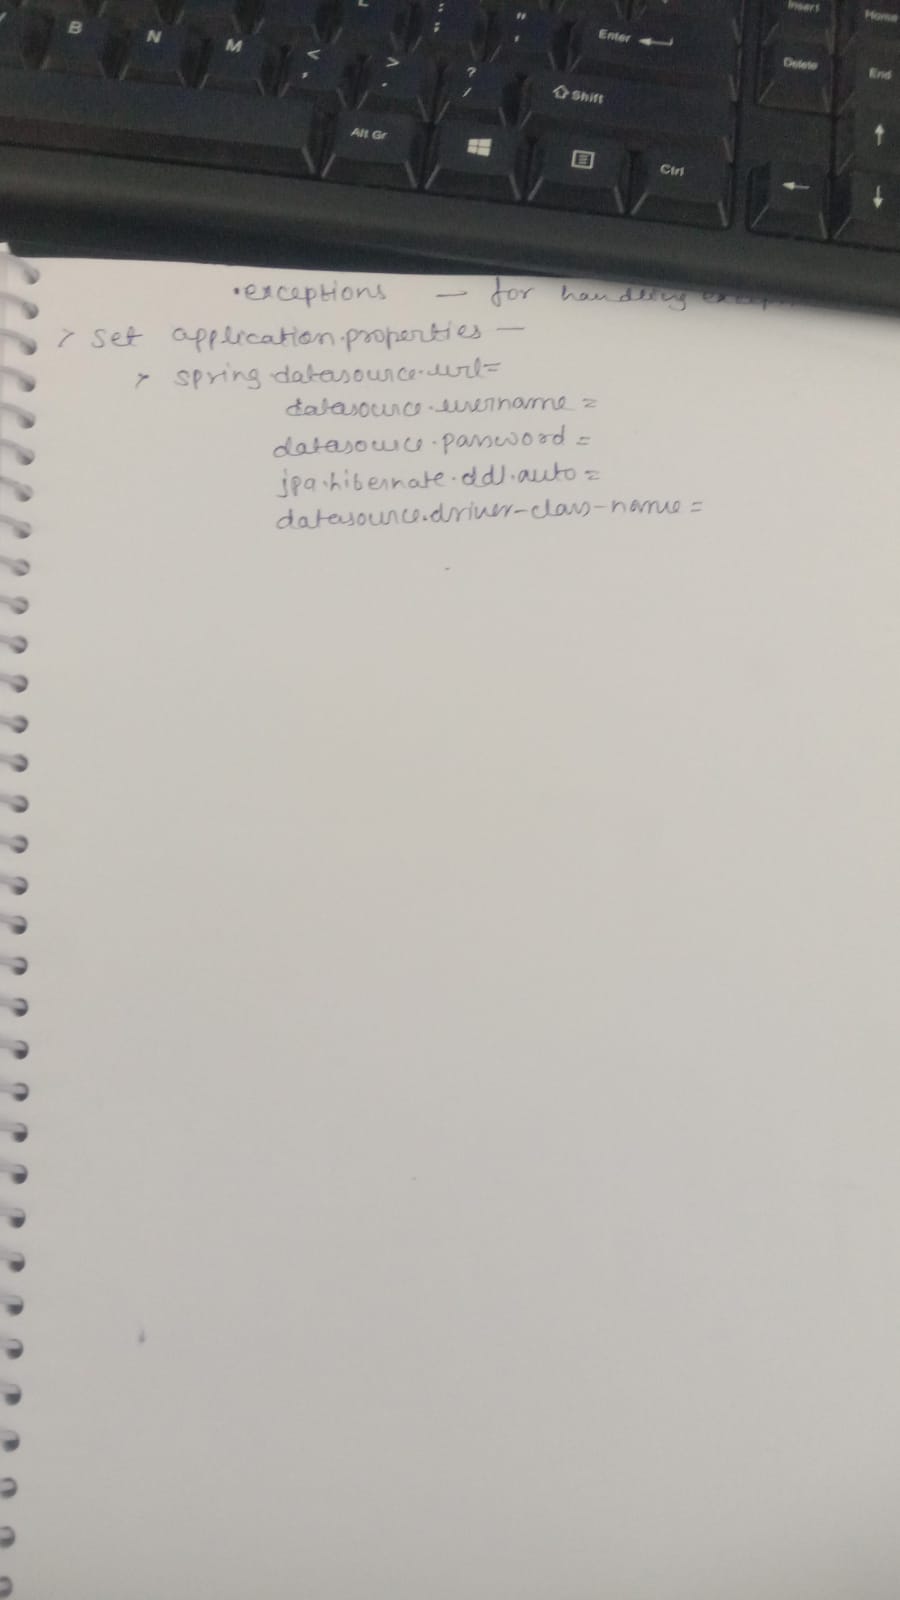 B N M < , > . ? / : ; " ' Enter Insert Home
Delete End
Shift
Alt Gr Ctrl
.exceptions — for handling
> set application.properties —
> spring.datasource.url=
datasource.username =
datasource.password =
jpa.hibernate.ddl.auto =
datasource.driver-class-name =